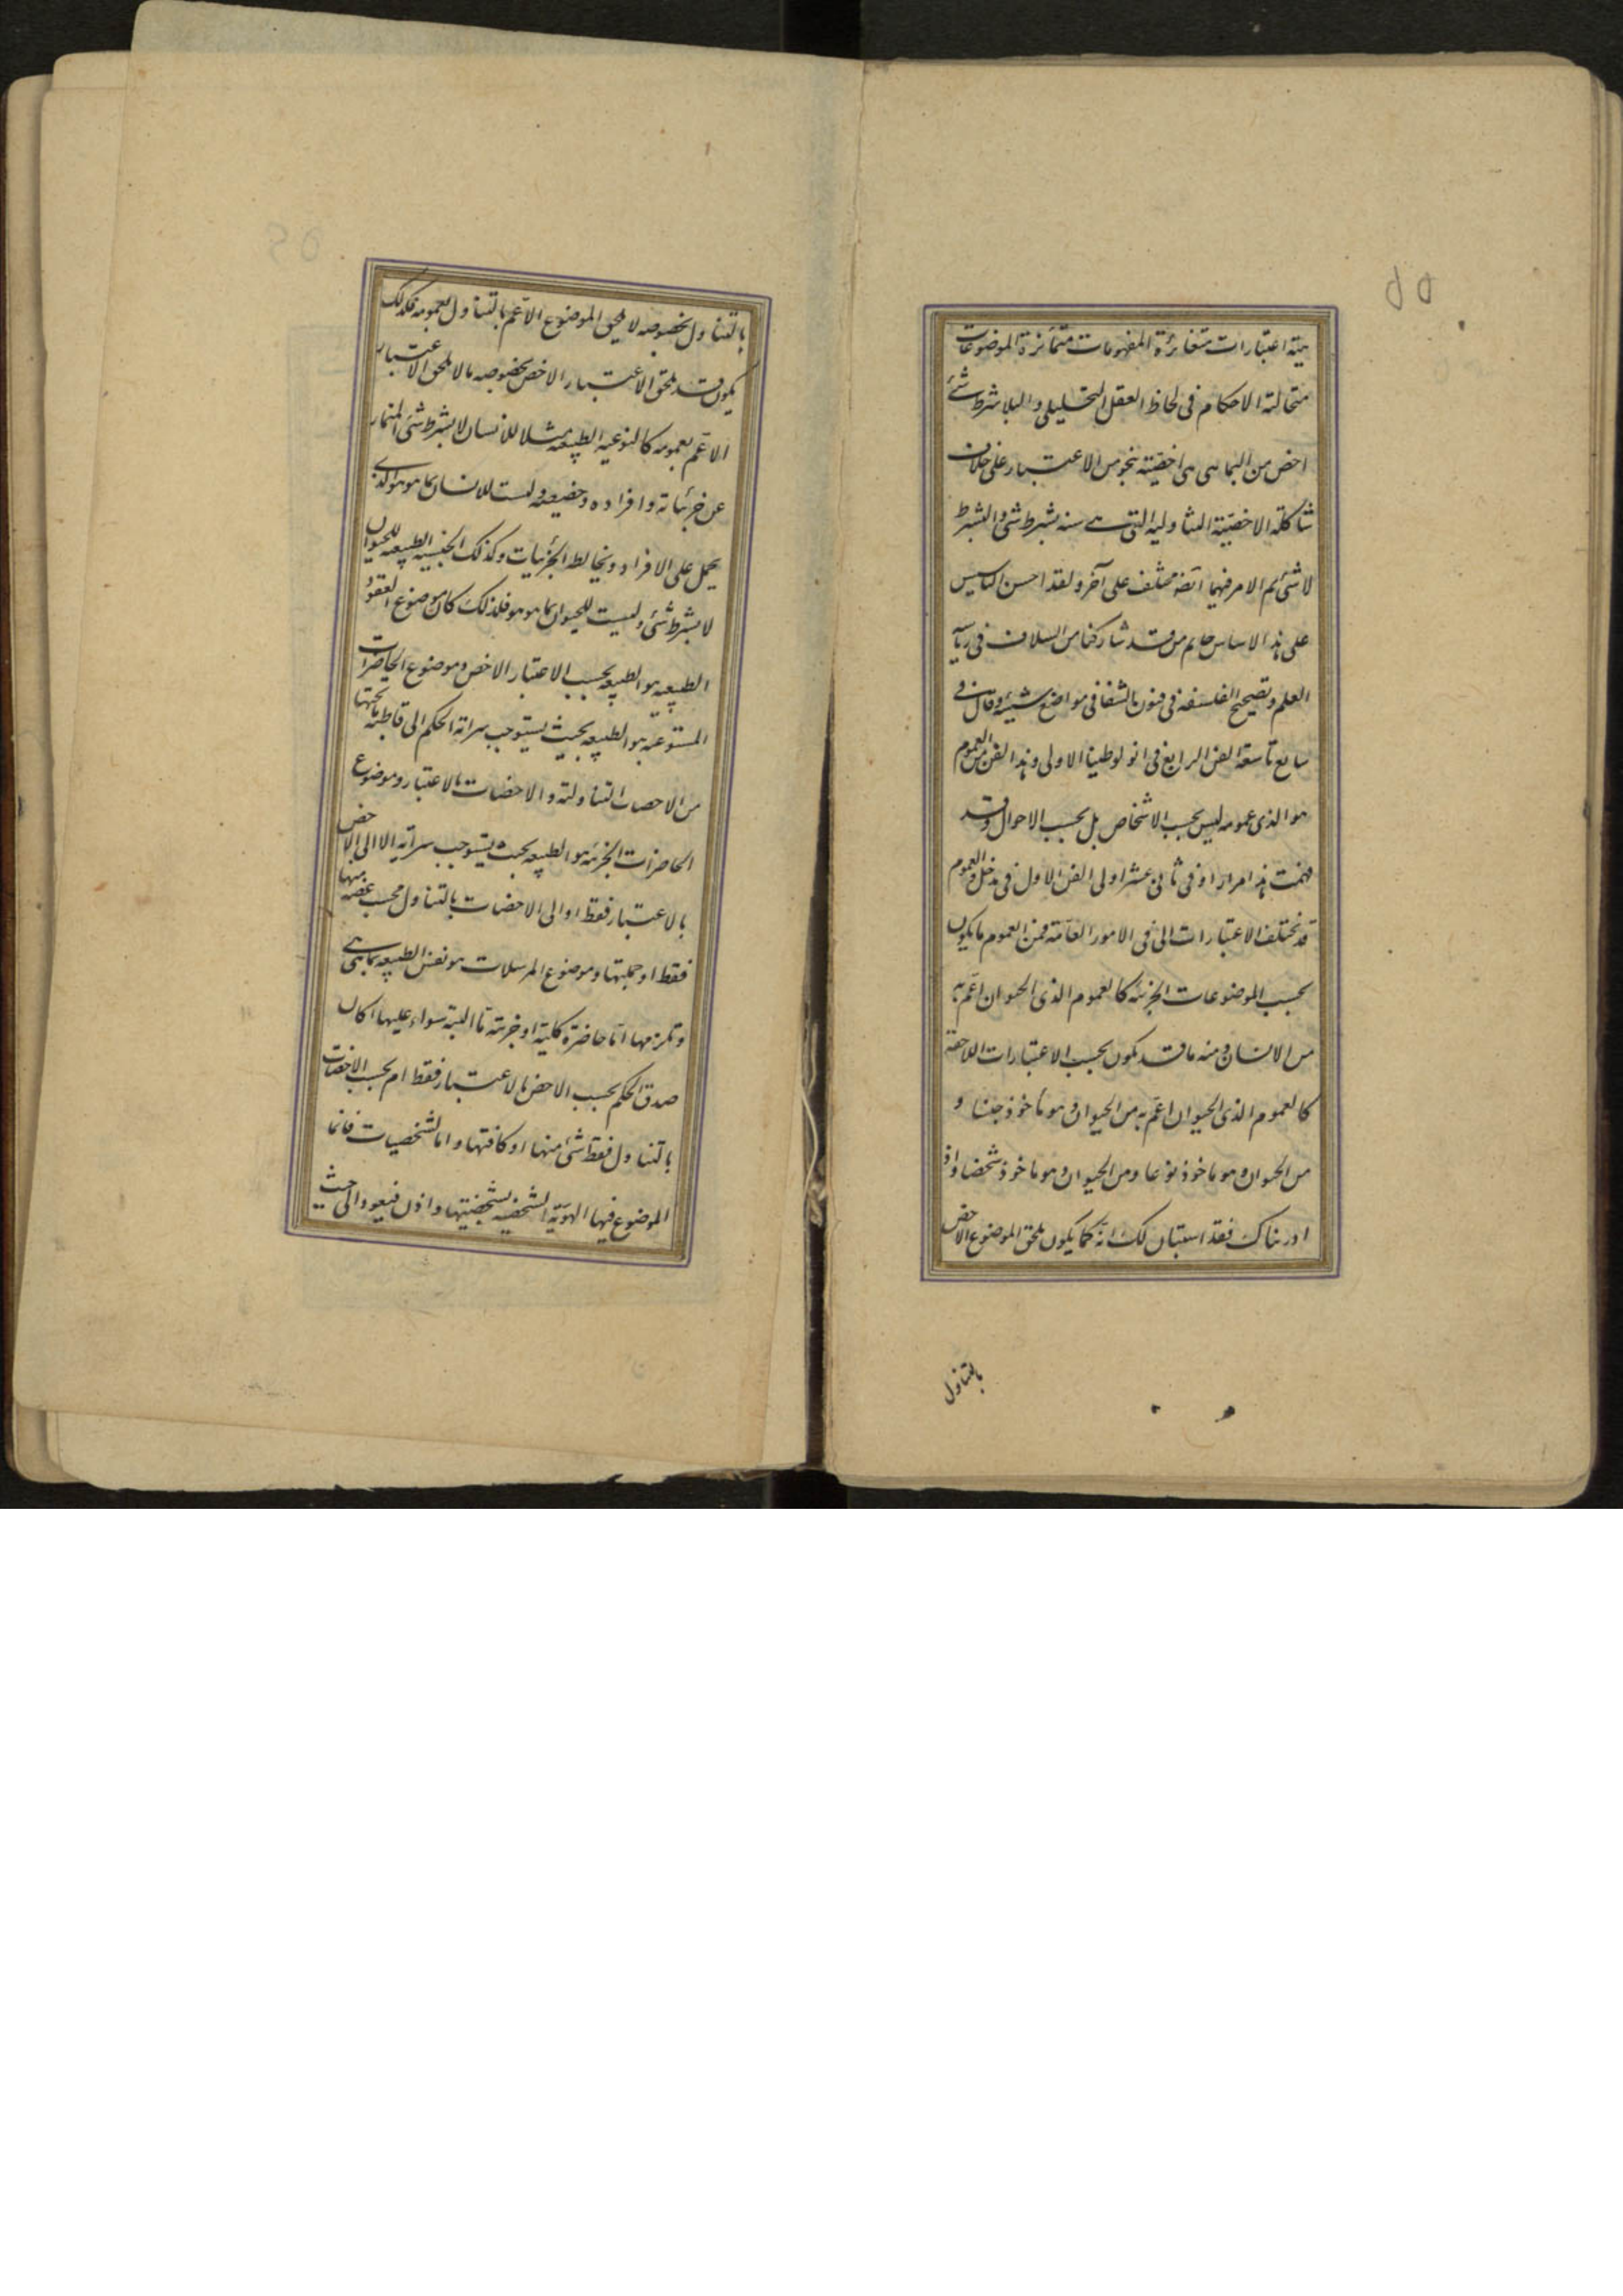 يته اعتبارات متغائرة المفهومات متمائزة الموضوعات
متخالفة الاحكام فى لحاظ العقل التحليلى والبلا شرط شئ
اخص من البما هى هى اخصية بنحو من الاعتبار على خلاف
شاكلة الاخصية التناولية التى هى سنة بشرط شئ والبشرط
لا شئ ثم الامر فيهما انفسهما على آخر ولقد احسن التاسيس
على هذا الاساس من قد شاركنا من السلاف فى رياسة
العلم وتصحيح الفلسفة فى فنون بالشفا فى مواضع شتيتة وقال فى
سابع تاسعة الفن الرابع فى انولوطيقا الاولى وهذا الفن من العموم
هو الذى عمومه ليس بحسب الاشخاص بل بحسب الاحوال وقد
فهمت هذا مرارا وفى ثانى عشر اولى الفن الاول فى مدخل والعموم
قد يختلف الاعتبارات التى فى الامور العامة فمن العموم ما يكون
بحسب الموضوعات الجزئية كالعموم الذى الحيوان اعم به
من الانسان ومنه ما قد يكون بحسب الاعتبارات اللاحقة
كالعموم الذى الحيوان اعم به من الحيوان وهو ماخوذ جنسا و
من الحيوان وهو ماخوذ نوعا ومن الحيوان وهو ماخوذ شخصا واذ
ادريناك فقد استبان لك انه كما يكون يلحق الموضوع الاخص
بالتناول
بالتناول بخصوصه لا يلحق الموضوع الاعم بالتناول بعمومه فكذلك
يكون قد يلحق الاعتبار الاخص بخصوصه ما لا يلحق الاعتبار
الاعم بعمومه كالنوعية الطبيعية مثلا للانسان لا بشرط شئ المنماز
عن جزئياته وافراده وليست للانسان بما هو هو الذى
يحمل على الافراد ويخالط الجزئيات وكذلك الجنسية الطبيعية للحيوان
لا بشرط شئ وليست للحيوان بما هو هو فلذلك كان موضوع العقود
الطبيعية هو الطبيعة بحسب الاعتبار الاخص وموضوع الحاصرات
المستوعبة هو الطبيعة بحيث يستوجب سراية الحكم الى قاطبة ما تحتها
من الاخصات التناولية والاخصات بالاعتبار وموضوع
الحاصرات الجزئية هو الطبيعة بحيث يستوجب سرايته الا الى الاخص
بالاعتبار فقط او الى الاخصات بالتناول بحسب بعضه منها
فقط او جملتها وموضوع المرسلات هو نفس الطبيعة بما هى هى
وتلزمها اما حاصرة كلية او جزئية ما البتة سواء عليها اكان
صدق الحكم بحسب الاخص بالاعتبار فقط ام بحسب الاخصات
بالتناول فقط شئ منها او كافتها واما الشخصيات فانما
الموضوع فيها الهوية الشخصية بشخصيتها واذن فيعود الى حيث